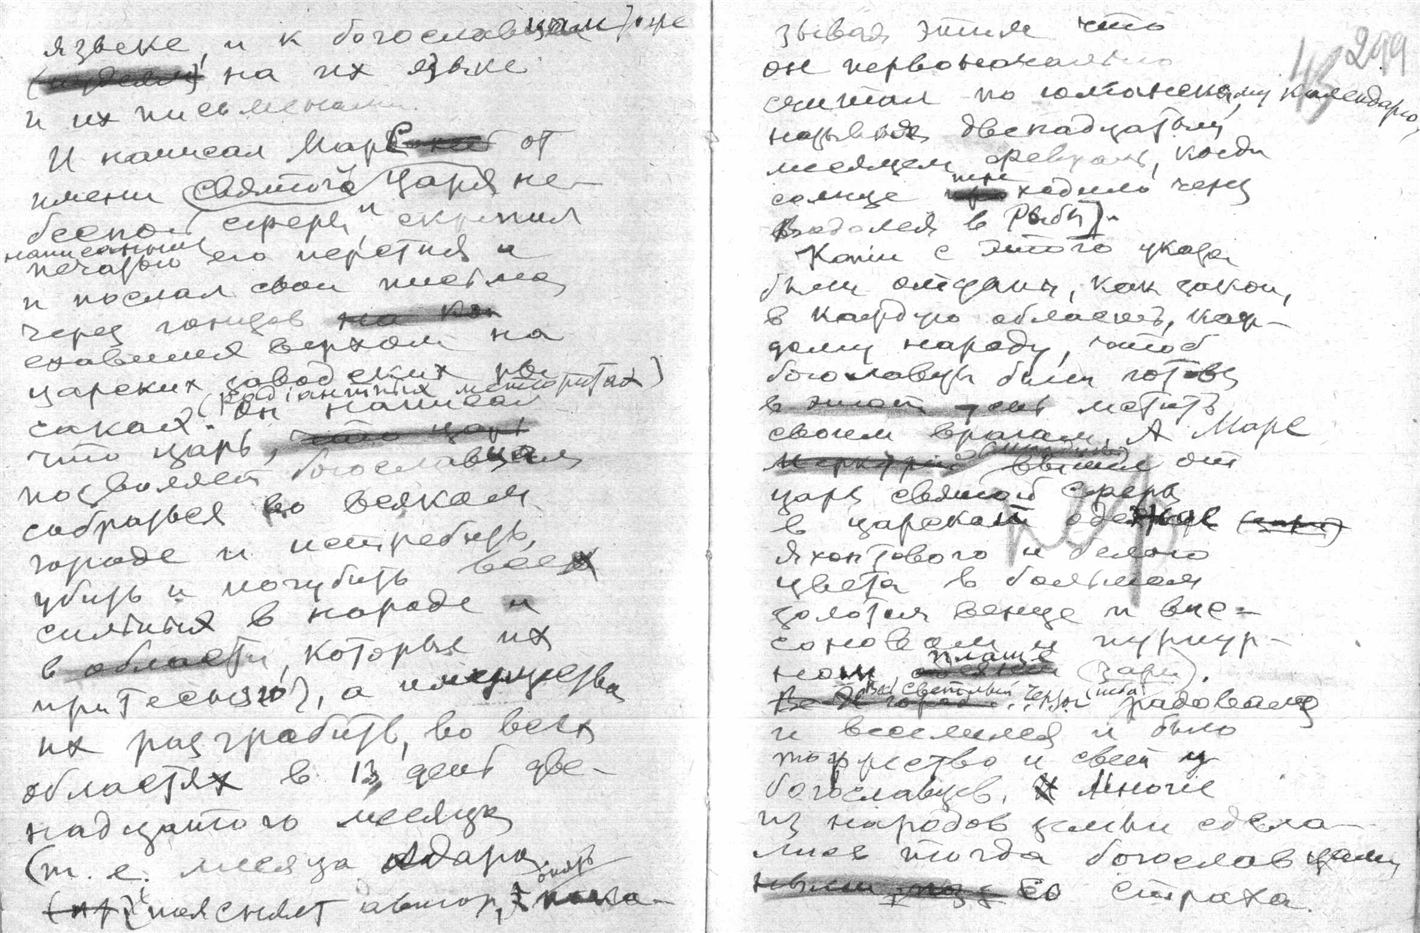 языке, и к богославцам тоже
на их языке
и их письменами.
И написал Марс от
имени святого Царя не-
бесной сферы и скрепил
написанный
печатью его перстня и
и послал свои письма
через гонцов
ехавших верхом на
царских заводских
(радіантных метеоритах)
скакал. Он написал
что царь,
позволяет богославцам
собраться во всяком
городе и истребить,
убить и погубить всех
сильных в народе и
в области, которые их
притесняют, а имущества
их разграбить, во всех
областях в 13 день две-
надцатого месяца
(т. е. месяца Адара,
поясняет автор, пока-
зывая этим что
он первоначально
считал по юлианскому календарю,
называя двенадцатым
месяцем февраль, когда
солнце переходило через
Водолея в Рыбы).
Копии с этого указа
были отданы, как закон,
в каждую область, каж-
дому народу, чтоб
богославцы были готовы
в этот день мстить
своим врагам. А Марс
вышел от
царя святой сферы
в царской одежде
яхонтового и белого
цвета в большом
золотом венце и вис-
соновом и пурпур-
ном плаще (зари).
радовался
и веселился и было
торжество и свет у
богославцев. Многие
из народов земли сдела-
лись тогда богославцами
со страха.
299